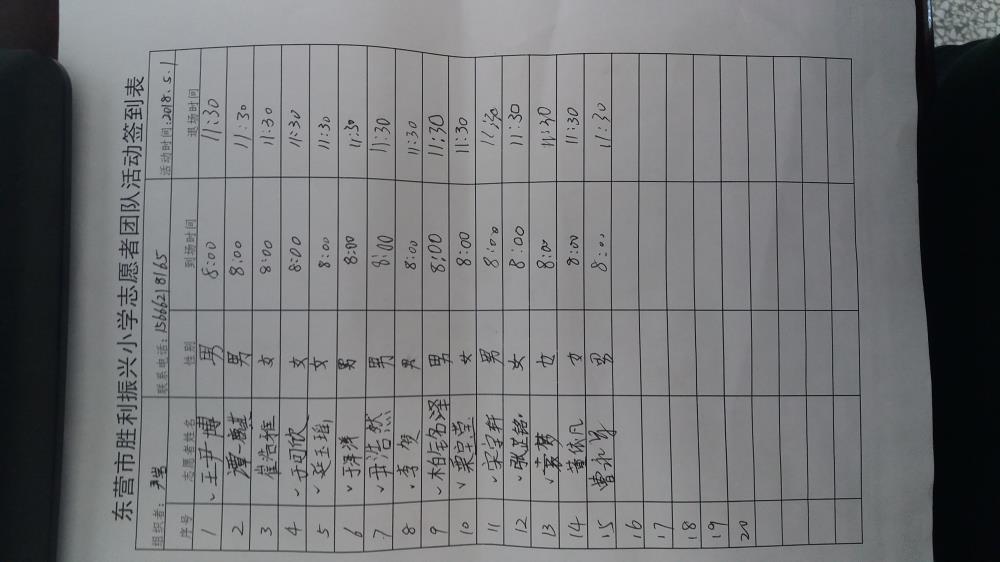 东营市胜利振兴小学志愿者团队活动签到表
组织者: 联系电话:15666218165 活动时间:2018.5.1
序号 志愿者姓名 性别 到场时间 退场时间
1 ✓王尹博 男 8:00 11:30
2 谭一麒 男 8:00 11:30
3 崔浩雅 女 8:00 11:30
4 ✓于可欣 女 8:00 11:30
5 ✓延玉瑶 女 8:00 11:30
6 ✓于洋洋 男 8:00 11:30
7 ✓田浩然 男 8:00 11:30
8 ✓李贺 男 8:00 11:30
9 ✓柏铭泽 男 8:00 11:30
10 ✓栗 女 8:00 11:30
11 ✓宋宇轩 男 8:00 11:30
12 ✓张芷铭 女 8:00 11:30
13 ✓袁梦 女 8:00 11:30
14 黄依凡 女 8:00 11:30
15 曹 男 8:00 11:30
16
17
18
19
20